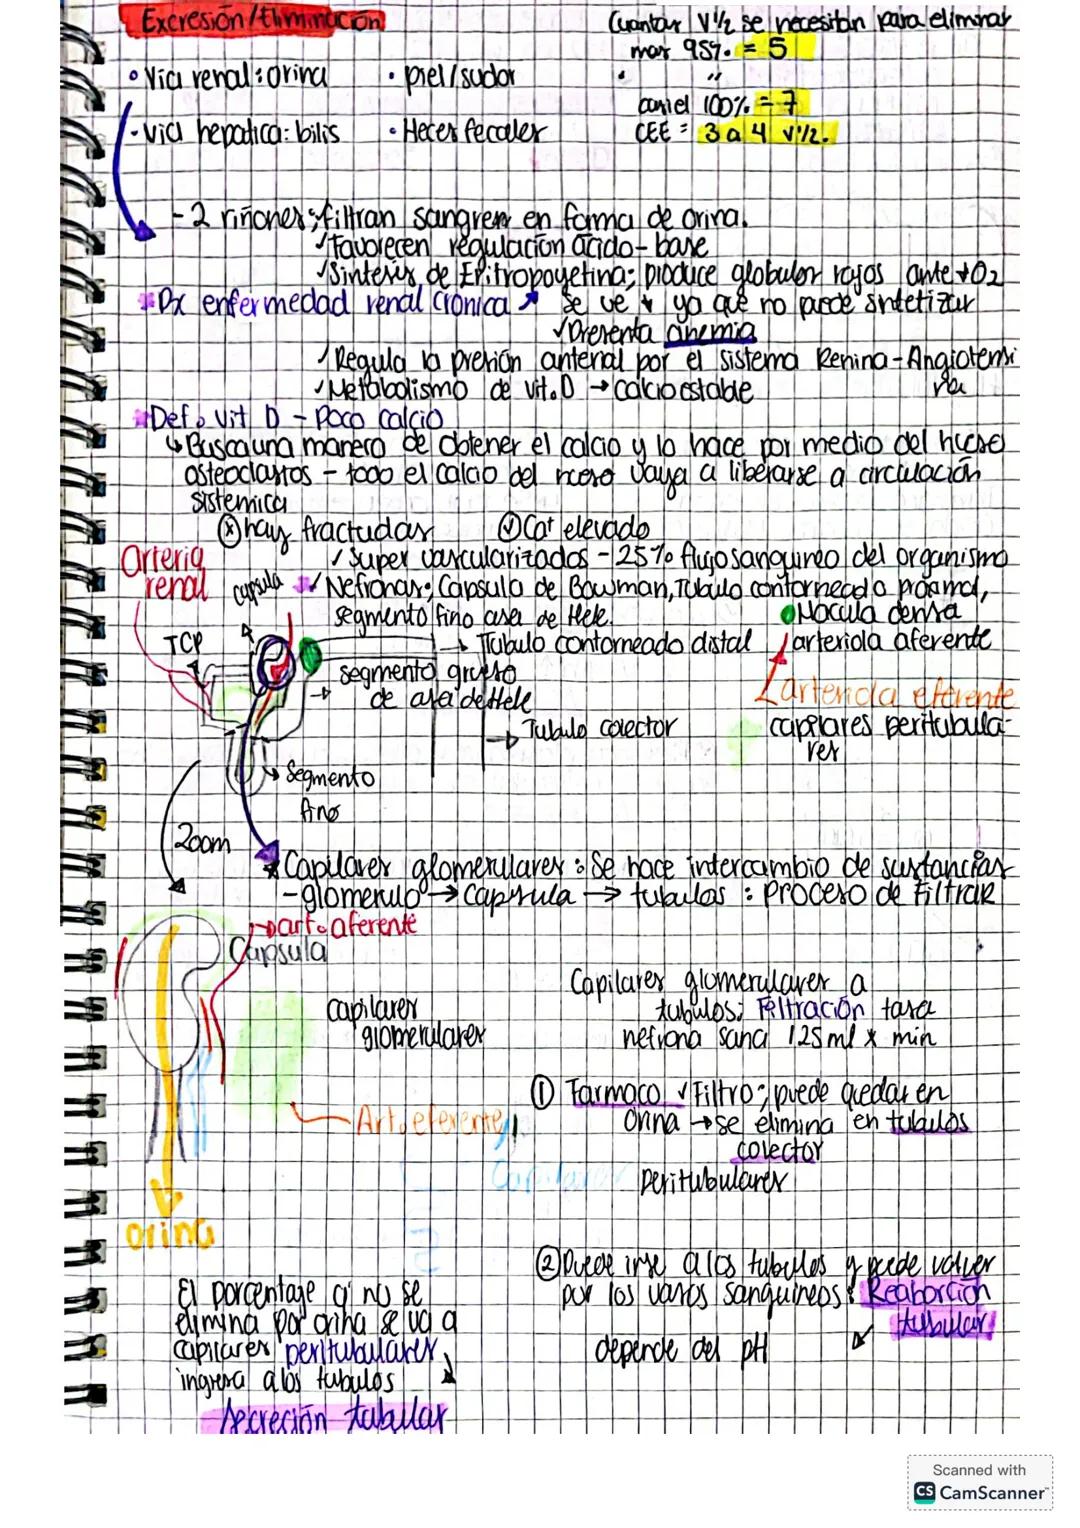 Excresión/Eliminación
Cuantas V1/2 se necesitan para eliminar
mas 95%. = 5
• Via renal: orina • piel/sudor
• "
casi el 100% = 7
- via hepatica: bilis • Heces fecales
CEE = 3 a 4 v1/2.
- 2 riñones; filtran sangre en forma de orina.
✓Favorecen regulación ácido-base
✓Sintesis de Epitropoyetina; produce globulos rojos ante ↓O2
*Px enfermedad renal cronica ↗ se ve ↓ ya que no puede sintetizar
✓Presenta anemia
✓Regula la presión arterial por el sistema Renina-Angiotensi
na
✓Metabolismo de vit.D → calcio estable
*Def. vit D - Poco calcio
↳ Busca una manera de obtener el calcio y lo hace por medio del hueso
osteoclastos - todo el calcio del hueso vaya a liberarse a circulación
sistemica
Ⓧ hay fracturas ✓ Ca+ elevado
Arteria
renal
✓Super vascularizados - 25% flujo sanguineo del organismo
capsula
✓ Nefronas; Capsula de Bowman, Tubulo contorneado proximal,
segmento fino asa de Hele.
Macula densa
TCP
→ Tubulo contorneado distal
arteriola aferente
segmento grueso
de asa de Hele
arteriola eferente
→ Tubulo colector
capilares peritubula-
res
→ Segmento
fino
Zoom
*Capilares glomerulares: Se hace intercambio de sustancias
- glomerulo → capsula → tubulos : proceso de Filtrar
→ art. aferente
Capsula
capilares
glomerulares
Capilares glomerulares a
tubulos; Filtración tasa
nefrona sana 125 ml x min
① Farmaco ✓Filtro; puede quedar en
orina → se elimina en tubulos
colector
Art. eferente
Capilares
peritubulares
orina
② Puede irse a los tubulos y puede volver
por los vasos sanguineos: Reaborción
tubular
depende del pH
El porcentaje q' no se
elimina por orina se va a
capilares peritubulares,
ingresa a los tubulos
secreción tubular
Scanned with
CS CamScanner